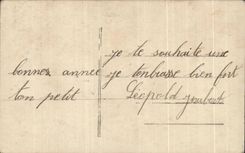 je te souhaite une
bonnes annee je tenbrasse bien fort
ton petit Léopold